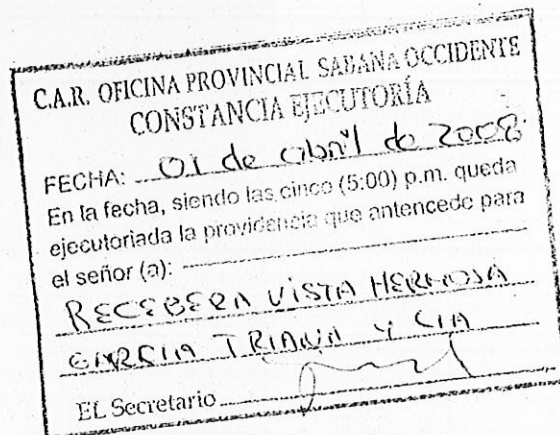 C.A.R. OFICINA PROVINCIAL SABANA OCCIDENTE
CONSTANCIA EJECUTORÍA
FECHA: 01 de abril de 2008
En la fecha, siendo las cinco (5:00) p.m. queda
ejecutoriada la providencia que antencede para
el señor (a):
RECEBERA VISTA HERMOSA
GARCIA TRIANA Y CIA
EL Secretario